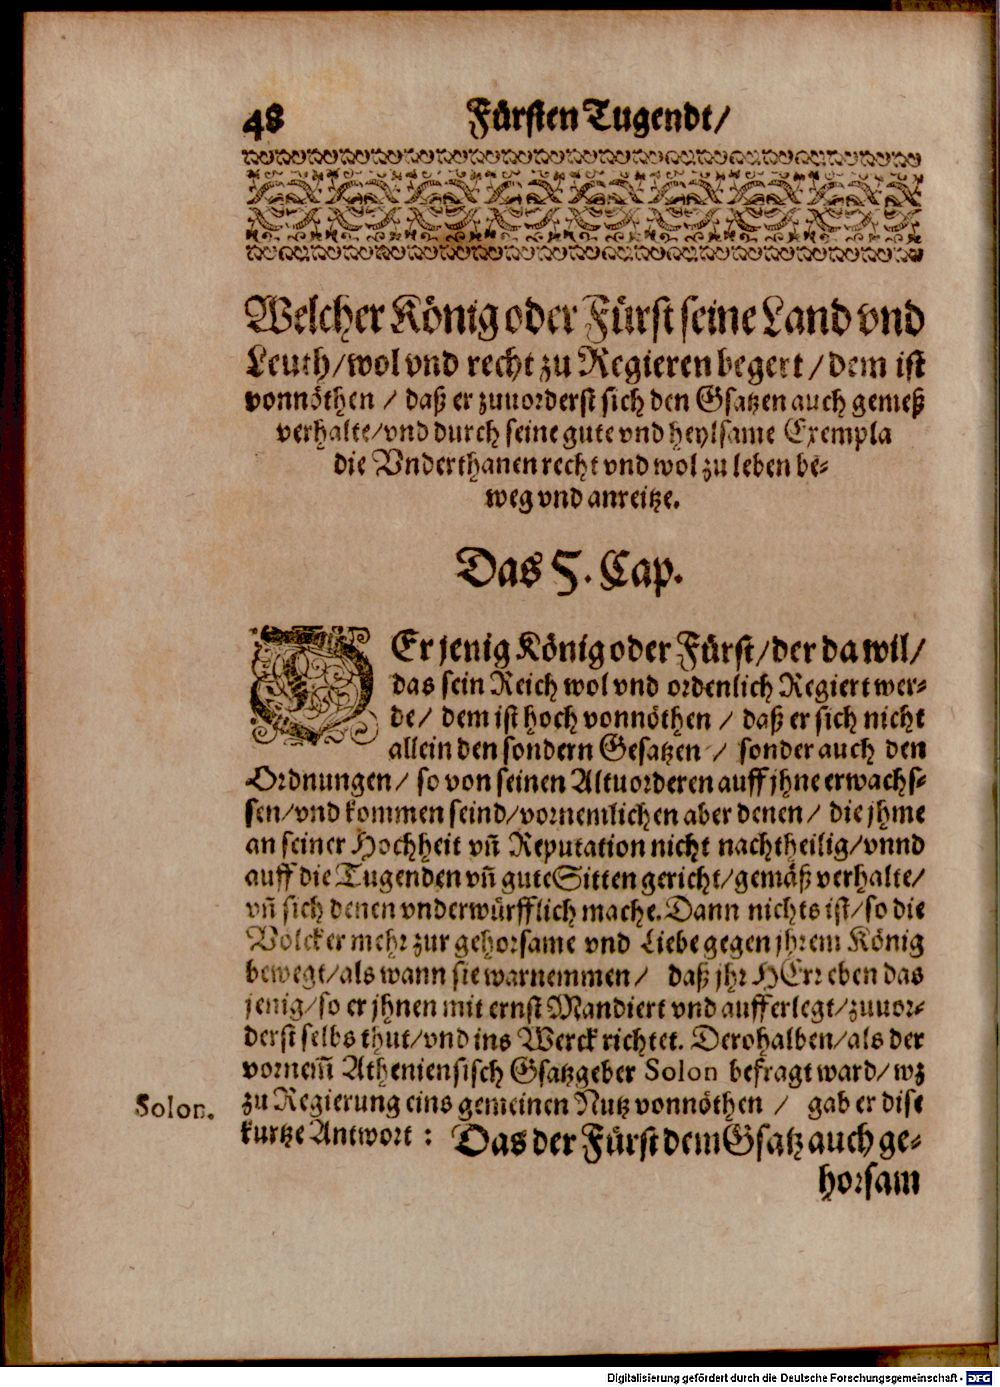 48 Fürsten Tugendt/
Welcher König oder Fürst seine Land vnd
Leuth/wol vnd recht zu Regieren begert/dem ist
vonnöthen / daß er zuuorderst sich den Gsatzen auch gemeß
verhalte/vnd durch seine gute vnd heylsame Exempla
die Vnderthanen recht vnd wol zu leben be-
weg vnd anreitze.
Das 5. Cap.
DEr jenig König oder Fürst/der da wil/
das sein Reich wol vnd ordenlich Regiert wer-
de/ dem ist hoch vonnöthen / daß er sich nicht
allein den sondern Gesatzen / sonder auch den
Ordnungen/ so von seinen Altuorderen auff jhne erwachs-
sen/vnd kommen seind/vornemlichen aber denen/ die jhme
an seiner Hochheit vñ Reputation nicht nachtheilig/vnnd
auff die Tugenden vñ gute Sitten gericht/gemäß verhalte/
vñ sich denen vnderwürfflich mache. Dann nichts ist/so die
Völcker mehr zur gehorsame vnd Liebe gegen jhrem König
bewegt/als wann sie warnemmen/ daß jhr HErr eben das
jenig/so er jhnen mit ernst Mandiert vnd aufferlegt/zuuor-
derst selbs thut/vnd ins Werck richtet. Derohalben/als der
vornem̃ Atheniensisch Gsatzgeber Solon befragt ward/wz
Solon. zu Regierung eins gemeinen Nutz vonnöthen / gab er dise
kurtze Antwort : Das der Fürst dem Gsatz auch ge-
horsam
Digitalisierung gefördert durch die Deutsche Forschungsgemeinschaft - DFG